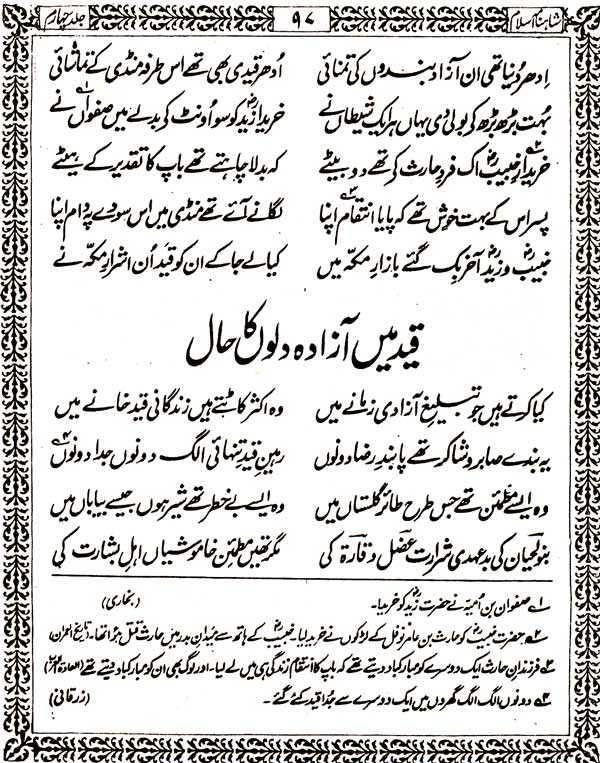 شاہنامہ اسلام ۹۷ جلد چہارم
اِدھر دُنیا تھی ان آزاد بندوں کی تمنائی اُدھر قیدی بھی تھے اس طرفہ منڈی کے تماشائی
بہت بڑھ بڑھ کی بولی دی یہاں ہر ایک شیطاں نے خریدا زیدؓ کو سو اونٹ کی بدلے میں صفواں۱ نے
خریدارِ خبیبؓ۲ اک فردِ حارث کی تھے دو بیٹے کہ بدلا چاہتے تھے باپ کا تقدیر کے ہیٹے
پسر اس کے بہت خوش تھے کہ پایا انتقام۳ اپنا لگانے آئے تھے منڈی میں اس سودے پہ دام اپنا
خبیبؓ و زیدؓ آخر بک گئے بازارِ مکہ میں کیا لے جا کے ان کو قید اُن اشرارِ مکہ نے
قید میں آزادہ دلوں کا حال
کیا کرتے ہیں جو تبلیغِ آزادی زمانے میں وہ اکثر کاٹتے ہیں زندگانی قید خانے میں
یہ بندے صابر و شاکر تھے پابندِ رضا دونوں رہینِ قیدِ تنہائی الگ دونوں جدا دونوں۴
وہ ایسے مطمئن تھے جس طرح طائر گلستاں میں وہ ایسے بے خطر تھے شیر ہوں جیسے بیاباں میں
بنو لحیان کی بد عہدی شرارت عضل و قارۃ کی مگر تھیں مطمئن خاموشیاں اہلِ بشارت کی
۱ صفوان بن اُمیہ نے حضرت زیدؓ کو خریدا۔ (بخاری)
۲ حضرت خبیبؓ کو حارث بن عامر نوفل کے لڑکوں نے خرید لیا۔ خبیبؓ کے ہاتھ سے میدانِ بدر میں حارث قتل ہوا تھا۔ (تاریخ العمران)
۳ فرزندانِ حارث ایک دوسرے کو مبارکباد دیتے تھے کہ باپ کا انتقام زندگی ہی میں لے لیا۔ اور لوگ بھی ان کو مبارکباد دیتے تھے
۴ دونوں الگ الگ گھروں میں ایک دوسرے سے جدا قید کئے گئے۔ (زرقانی)